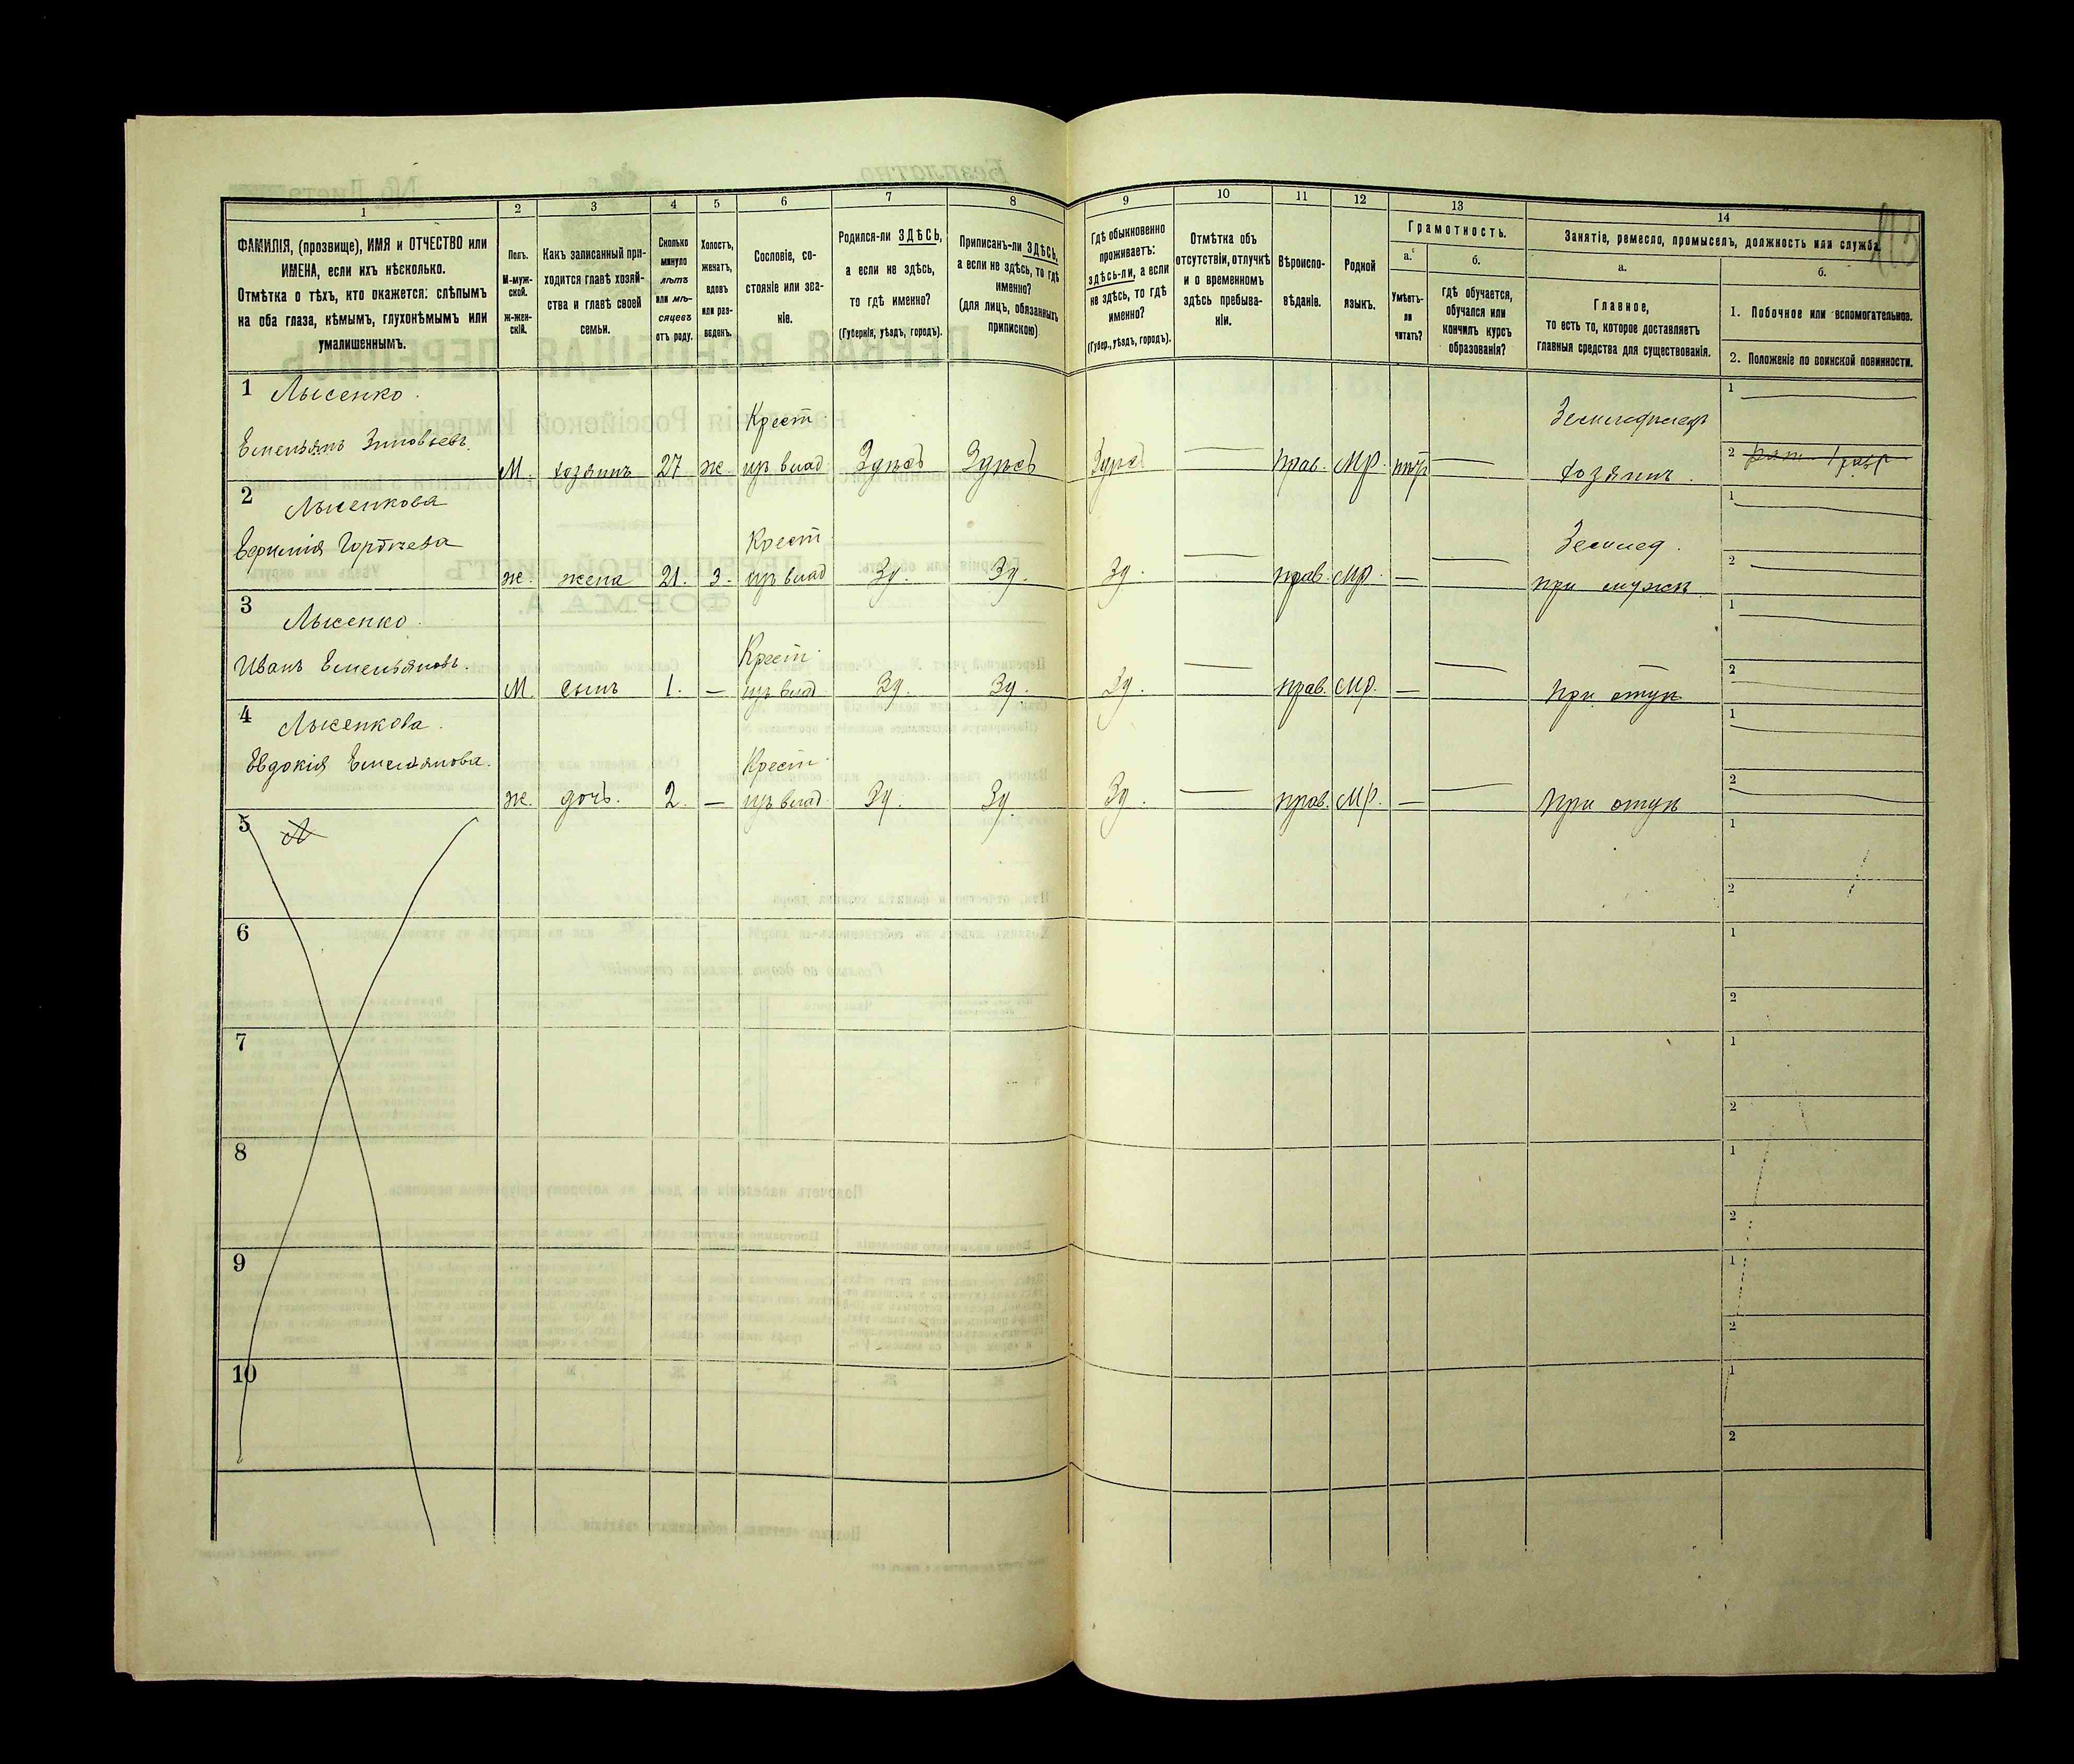 1 2 3 4 5 6 7 8 9 10 11 12 13 14
ФАМИЛІЯ, (прозвище), ИМЯ и ОТЧЕСТВО или
ИМЕНА, если ихъ нѣсколько.
Отмѣтка о тѣхъ, кто окажется: слѣпымъ
на оба глаза, нѣмымъ, глухонѣмымъ или
умалишеннымъ.
Полъ.
М-муж-
ской.
Ж-жен-
скій.
Какъ записанный при-
ходится главѣ хозяй-
ства и главѣ своей
семьи.
Сколько
минуло
лѣтъ
или мѣ-
сяцевъ
отъ роду.
Холостъ,
женатъ,
вдовъ
или раз-
веденъ.
Сословіе, со-
стояніе или зва-
ніе.
Родился-ли ЗДѢСЬ,
а если не здѣсь,
то гдѣ именно?
(Губернія, уѣздъ, городъ).
Приписанъ-ли ЗДѢСЬ,
а если не здѣсь, то гдѣ
именно?
(для лицъ, обязанныхъ
припискою)
Гдѣ обыкновенно
проживаетъ:
здѣсь-ли, а если
не здѣсь, то гдѣ
именно?
(Губер., уѣздъ, городъ).
Отмѣтка объ
отсутствіи, отлучкѣ
и о временномъ
здѣсь пребыва-
ніи.
Вѣроиспо-
вѣданіе.
Родной
языкъ.
Грамотность.
а.
Умѣетъ-
ли
читать?
б.
гдѣ обучается,
обучался или
кончилъ курсъ
образованія?
Занятіе, ремесло, промыселъ, должность или служба.
а.
Главное,
то есть то, которое доставляетъ
главныя средства для существованія.
б.
1. Побочное или вспомогательное.
2. Положеніе по воинской повинности.
1 Лысенко.
Емельянъ Зиновьевъ.
М. хозяинъ 27 ж.
Крест
изъ влад
Здѣсь Здѣсь — прав. Мр. —
хозяинъ.
1
2
2 Лысенкова
Ефимія
ж. жена 21. з.
Крест
изъ влад
Зд. Зд. Зд. — прав. Мр. — —
Землед.
при мужѣ.
1
2
3 Лысенко.
Иванъ Емельяновъ.
М. сынъ 1. —
Крест.
изъ влад.
Зд. Зд. Зд. — прав. Мр. — —
при отцѣ
1
2
4 Лысенкова.
Евдокія Емельянова.
ж. дочь. 2. —
Крест.
изъ влад.
Зд. Зд. Зд. — прав. Мр. — —
при отцѣ
1
2
5
1
2
6
1
2
7
1
2
8
1
2
9
1
2
10
1
2